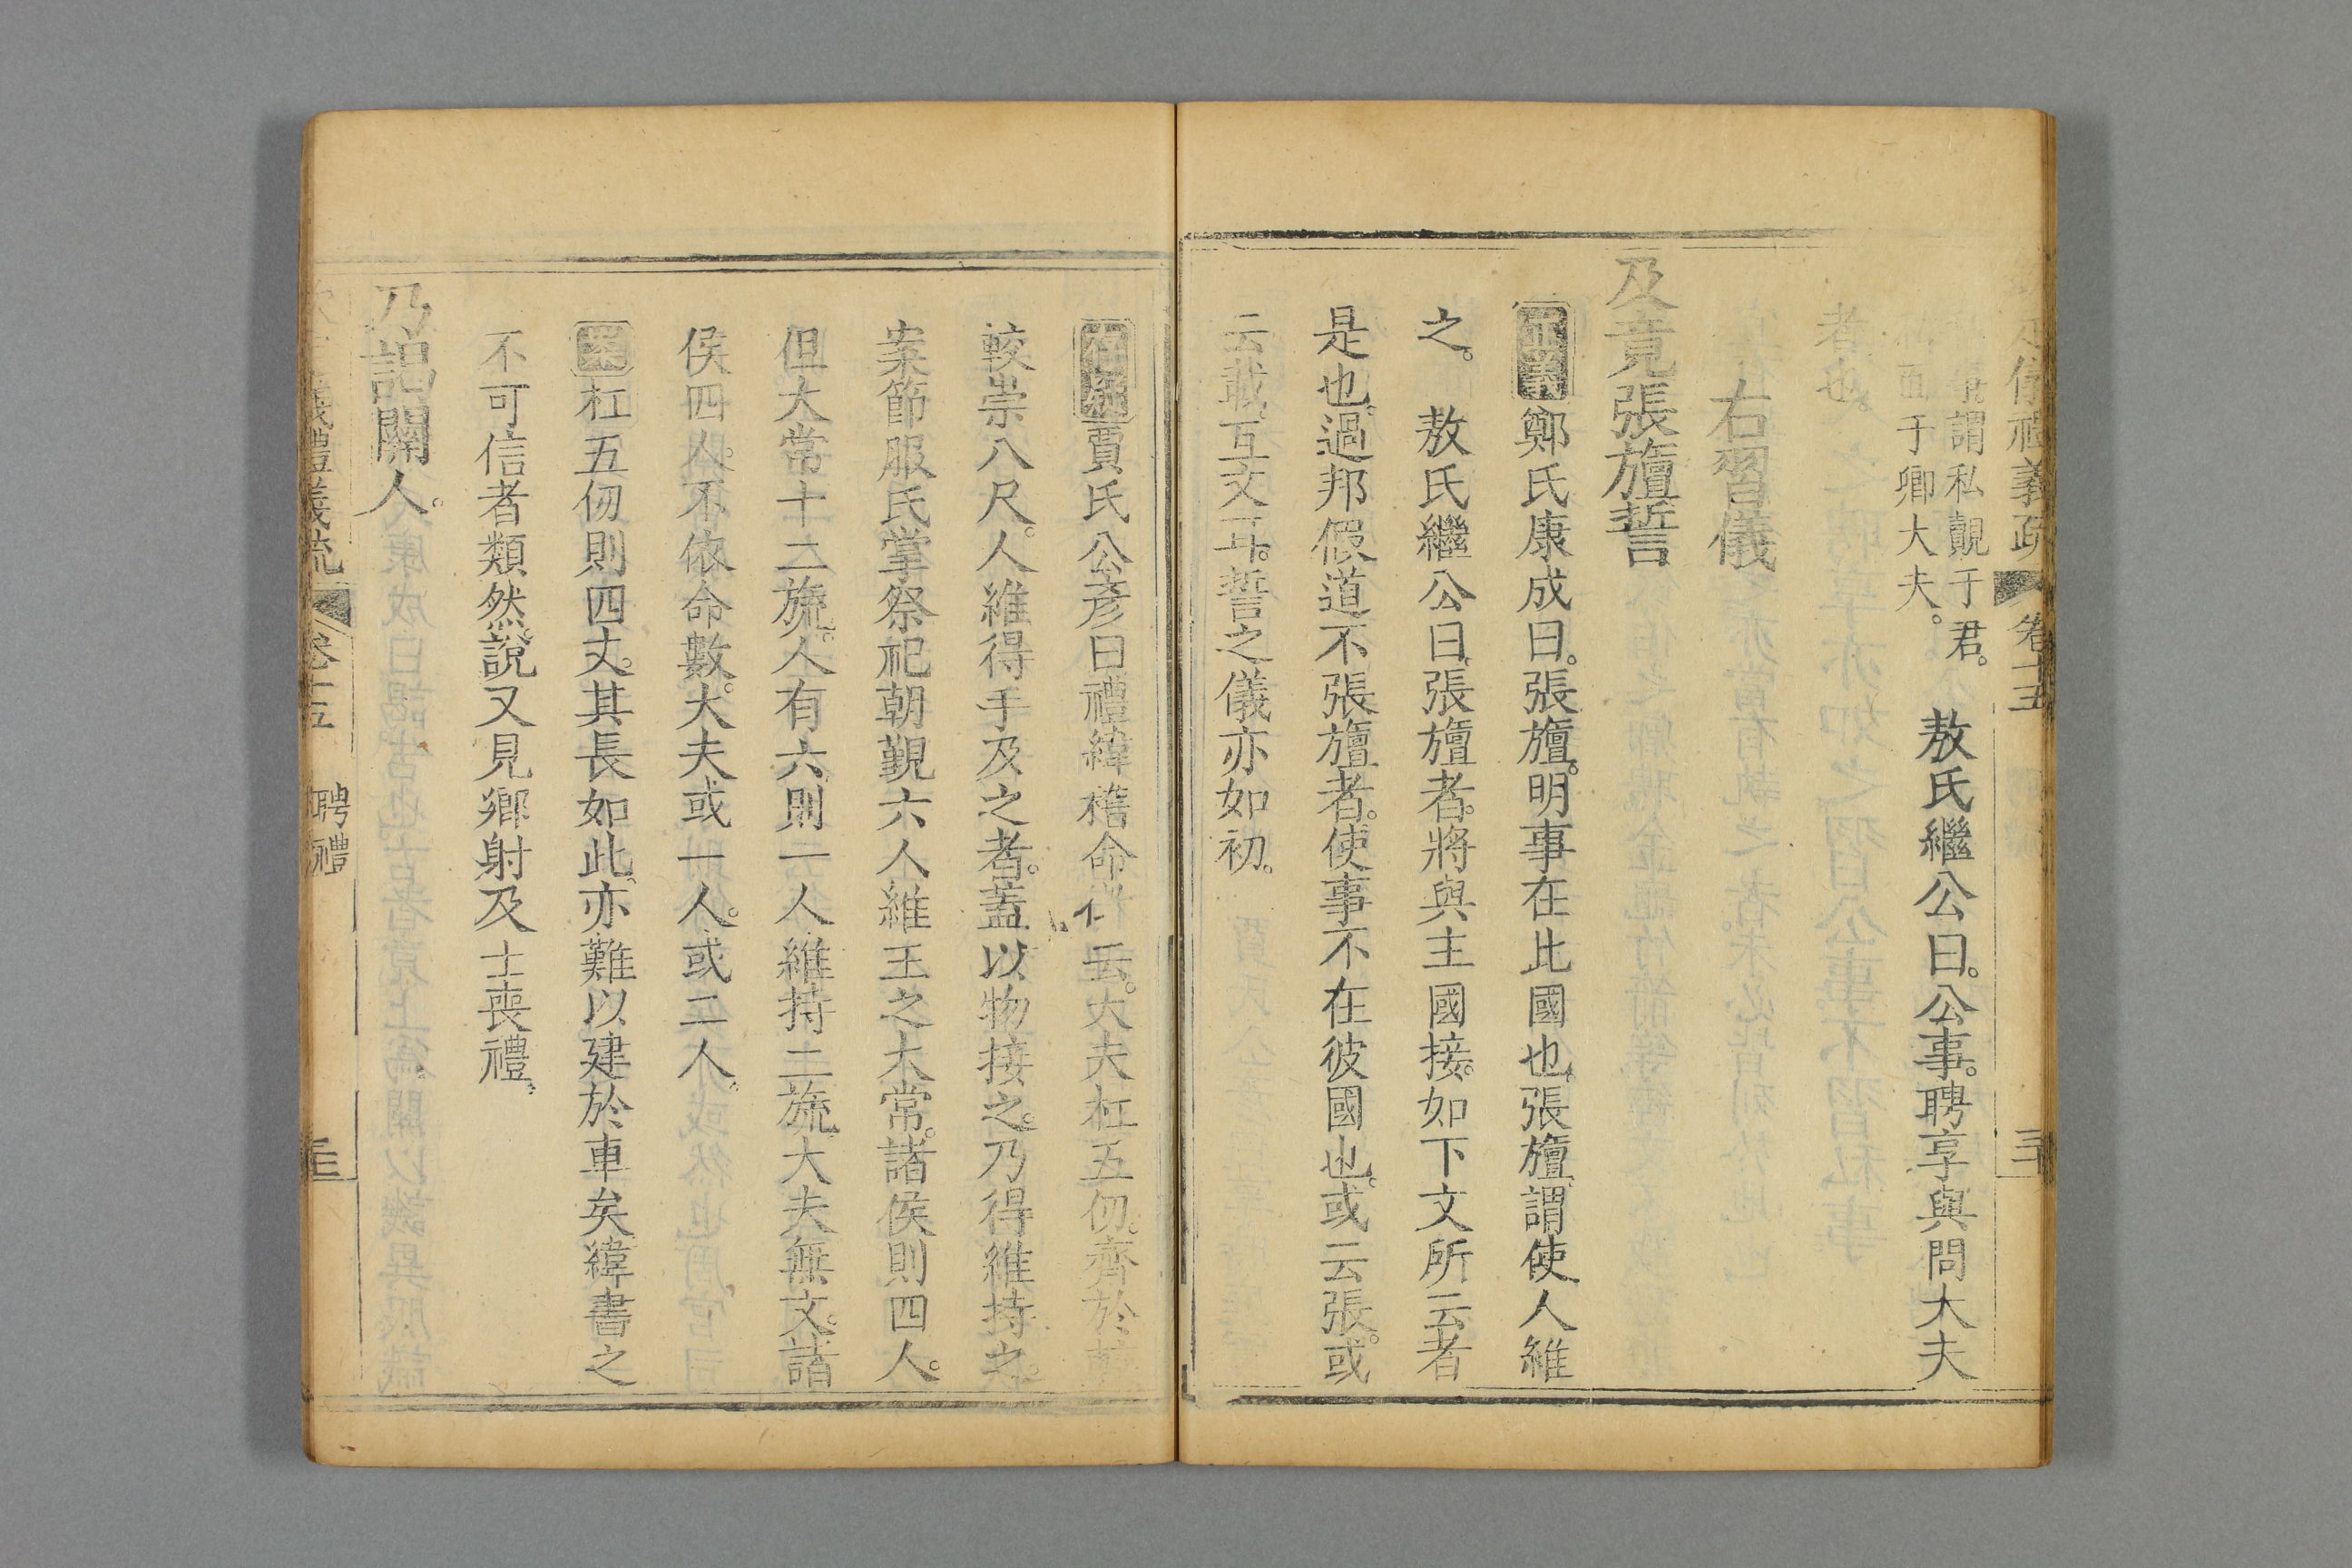 儀禮義疏 卷十五 三十
謂私覿于君。
面于卿大夫。
敖氏繼公曰。公事。聘享與問大夫
者也。
右習儀
及竟張旜誓
正義鄭氏康成曰。張旜。明事在此國也。張旜。謂使人維
之。敖氏繼公曰。張旜者。將與主國接。如下文所云者
是也。過邦假道不張旜者。使事不在彼國也。或云張。或
云載。互文耳。誓之儀亦如初。
賈氏公彥曰禮緯稽命云。大夫杠五仞。齊於
較崇八尺。人維得手及之者。蓋以物接之。乃得維持之。
案節服氏掌祭祀朝覲六人維王之太常。諸侯則四人。
但大常十二旒。人有六則一人維持二旒。大夫無文。諸
侯四人。不依命數。大夫或一人。或二人。
案杠五仞則四丈。其長如此。亦難以建於車矣緯書之
不可信者類然。說又見鄉射及士喪禮。
乃謁關人。
儀禮義疏 卷十五 聘禮